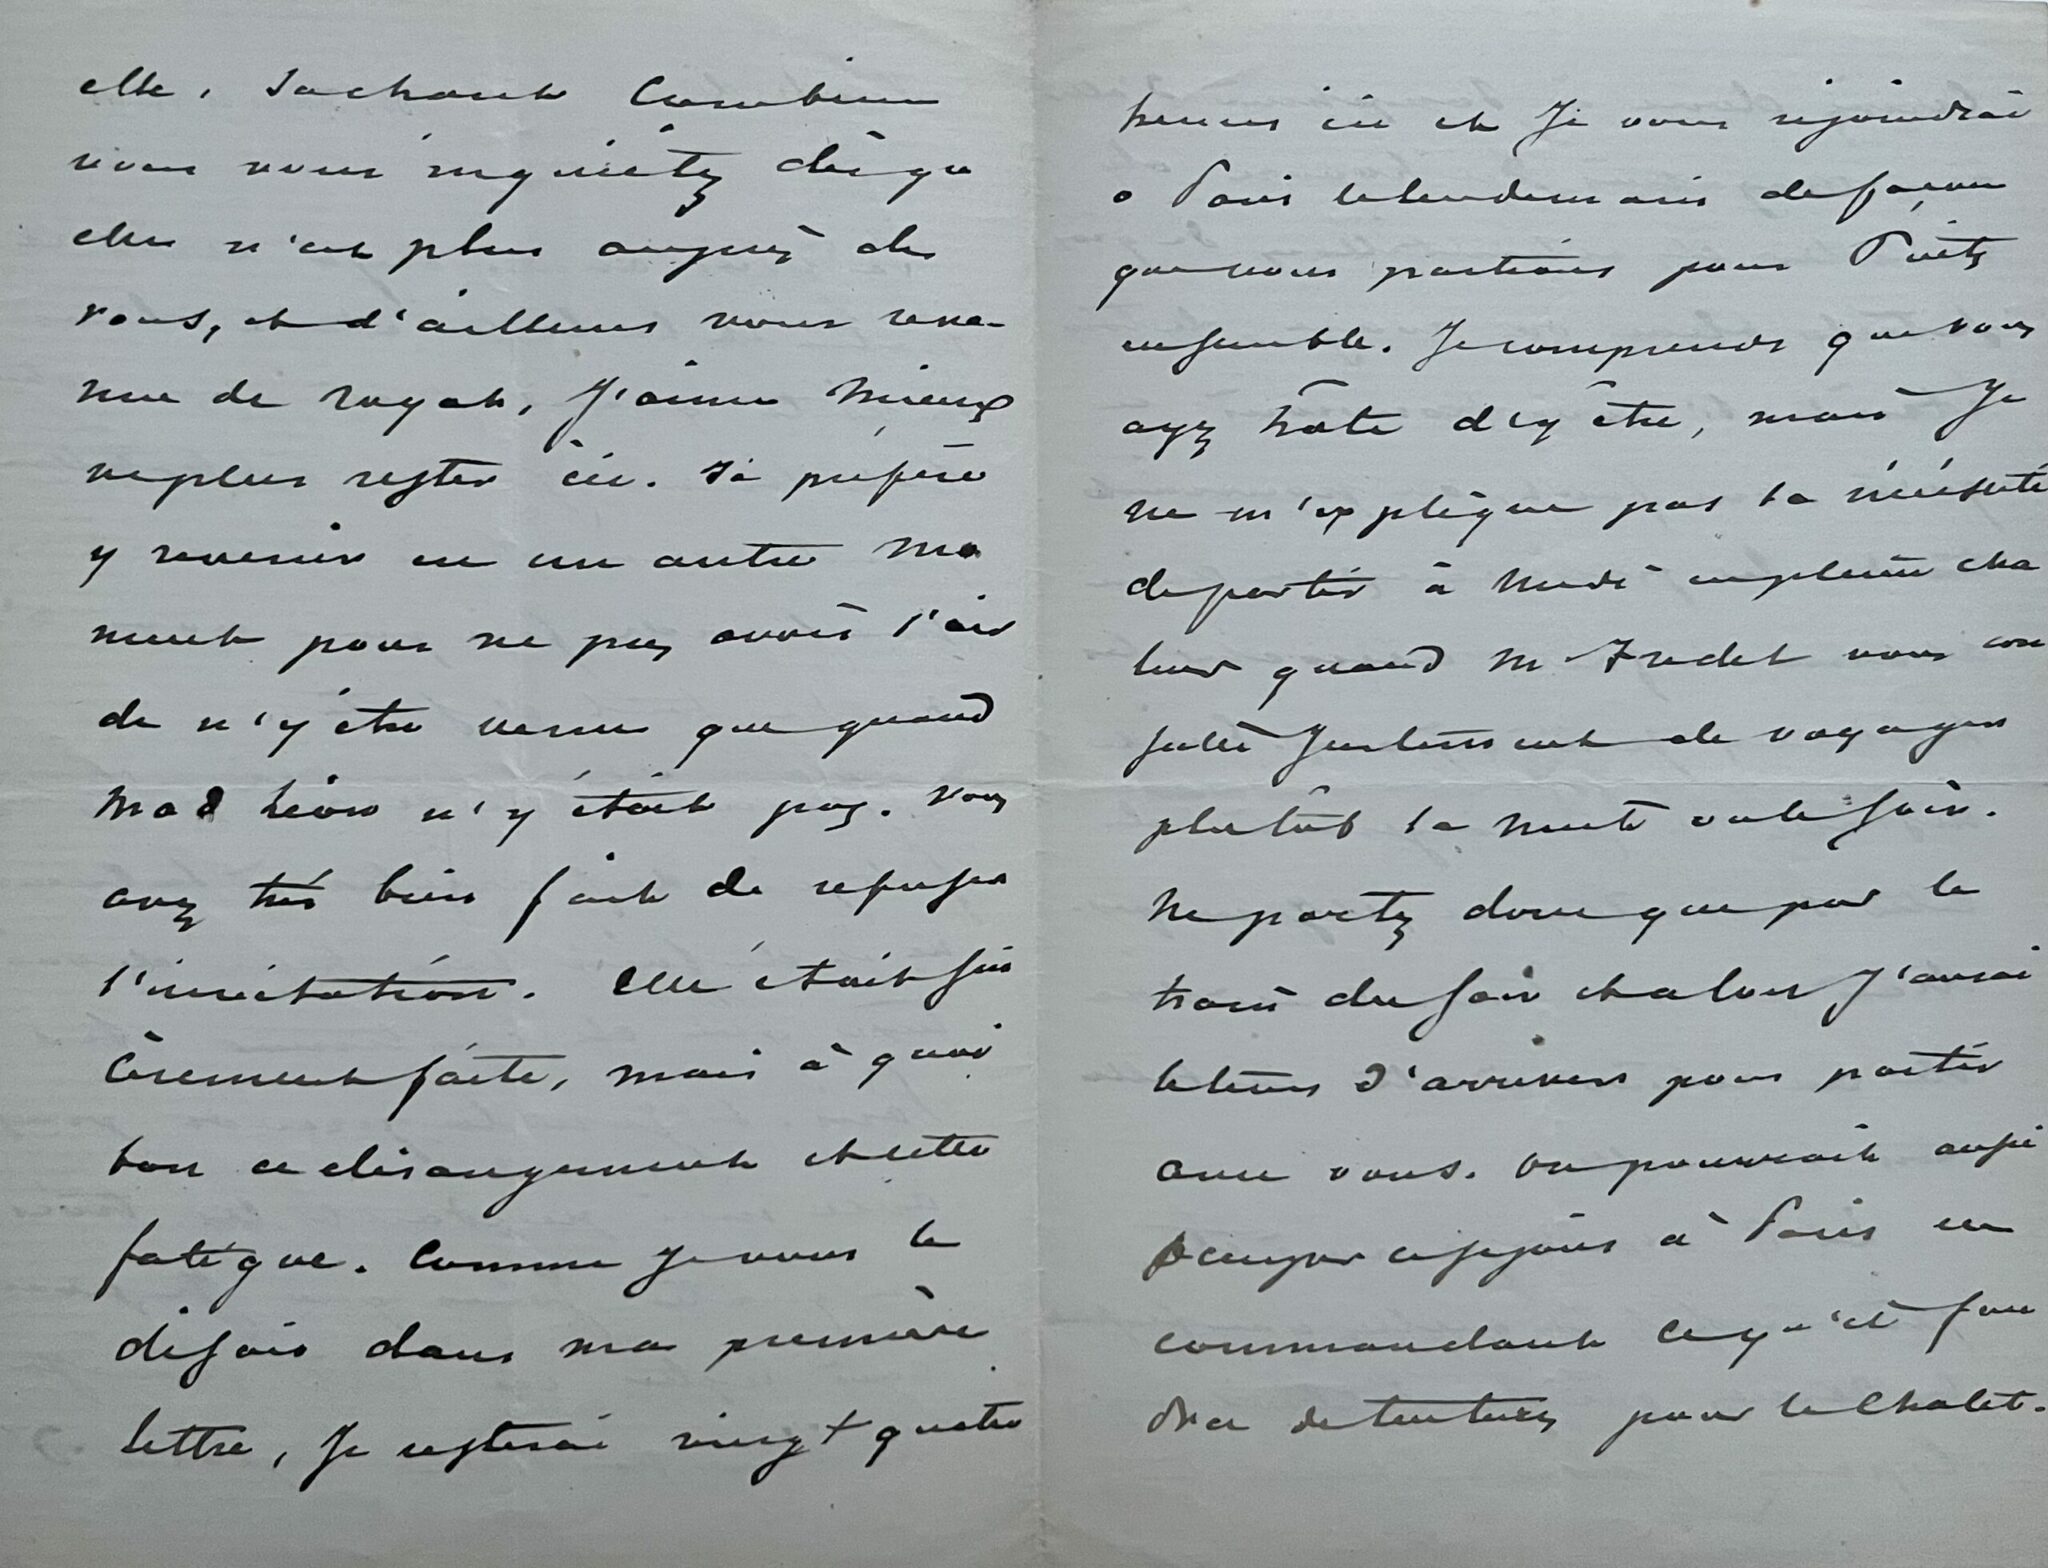 elle, sachant combien
vous vous inquiétez dès qu
elle n'est plus auprès de
vous, et d'ailleurs vous reve-
nue de royat, j'aime mieux
ne plus rester ici. Je préfère
y revenir en un autre mo
ment pour ne pas avoir l'air
de n'y être venu que quand
Mad Léon n'y était pas. Vous
avez très bien fait de refuser
l'invitation. Elle était sin
cèrement faite, mais à quoi
bon ce dérangement et cette
fatigue. Comme je vous le
disais dans ma première
lettre, je resterai vingt quatre
heures ici et je vous rejoindrai
a Paris le lendemain de façon
que nous partions pour Puits
ensemble. Je comprends que vous
ayez hâte d'y être, mais je
ne m'explique pas la nécessité
de partir à midi en pleine cha
leur quand Mr Fredet vous con
seille justement de voyager
plutôt la nuit ou le soir.
Ne partez donc que par le
train du soir et alors j'aurai
le temps d'arriver pour partir
avec vous. On pourrait aussi
occuper ce séjour à Paris en
commandant ce qu'il fau
dra de tentures pour le Chalet.